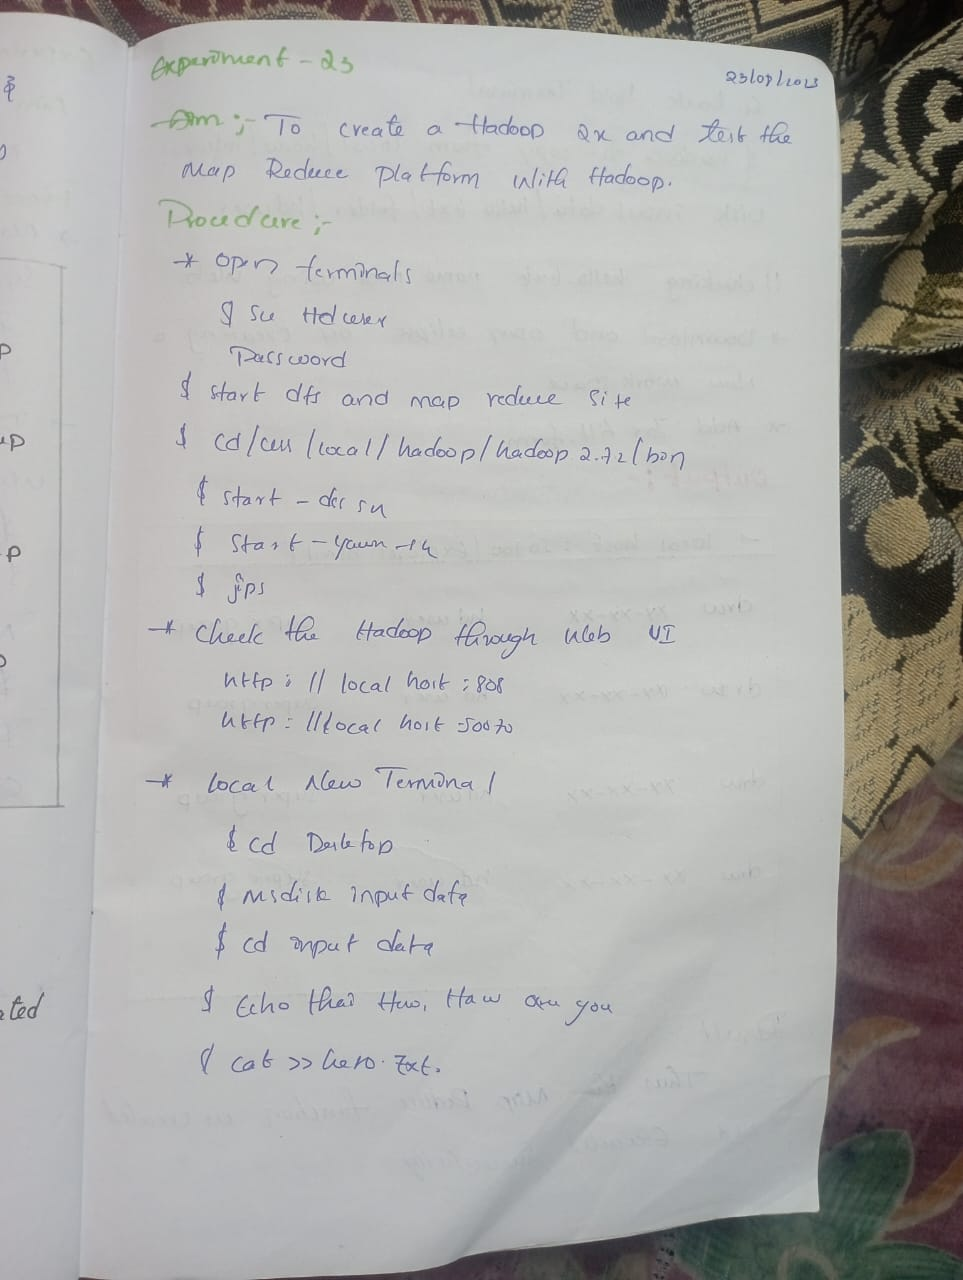 Experiment - 23
23/09/2023
Aim :- To create a Hadoop 2x and test the
Map Reduce Platform With Hadoop.
Procedure :-
* open terminals
$ su Hduser
Password
$ start dfs and map reduce site
$ cd/usr/local/hadoop/hadoop 2.7.2/bin
$ start -
$ start - yarn -
$ jps
* check the Hadoop through Web UI
http : // local host : 808
http : // local host :50070
* local New Terminal
$ cd Desktop
$ input data
$ cd input data
$ Echo you
$ cat >> hero.txt.
ated